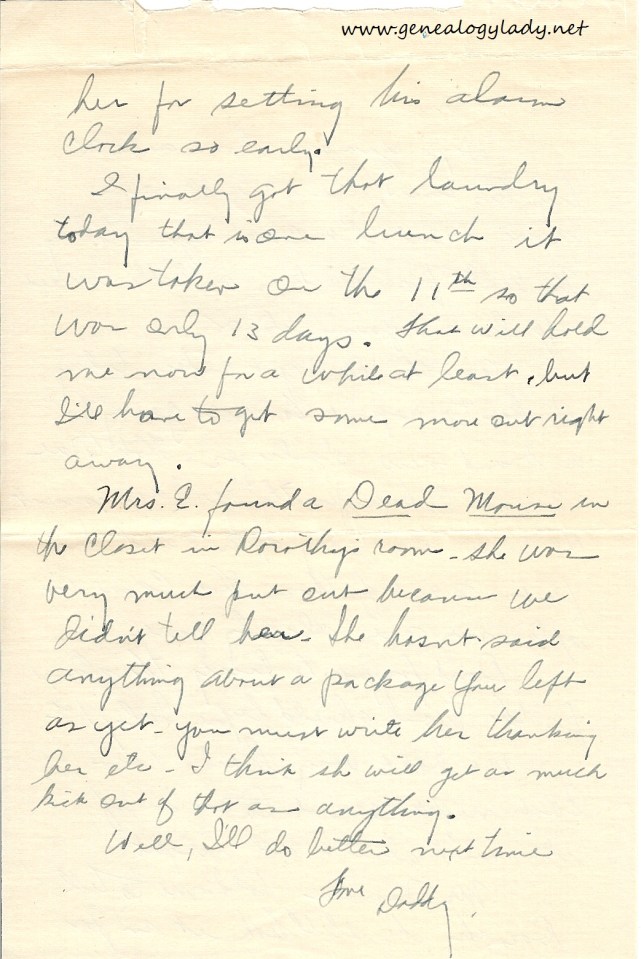 www.genealogylady.net
her for setting his alarm
clock so early.
I finally got that laundry
today that is one bunch it
was taken on the 11th so that
was only 13 days. That will hold
me now for a while at least, but
I'll have to get some more out right
away.
Mrs. E. found a Dead Mouse in
the closet in Dorothy's room - she was
very much put out because we
didn't tell her - She hasn't said
anything about a package you left
as yet - you must write her thanking
her etc - I think she will get as much
kick out of that as anything.
Well, I'll do better next time
Love Daddy.